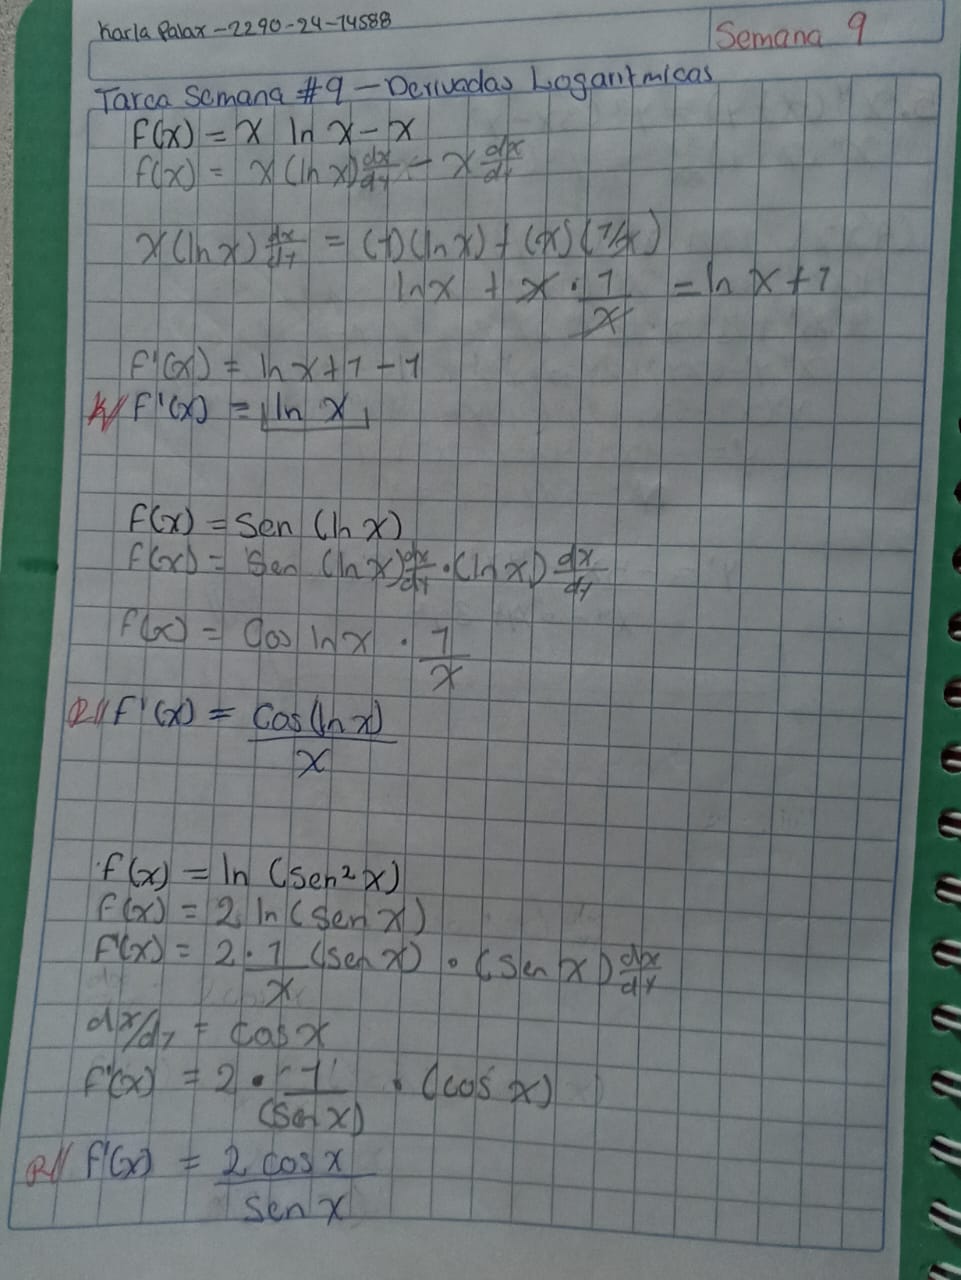 Karla Palax - 2290-24-14588
Semana 9
Tarea Semana #9 - Derivadas Logaritmicas
f(x) = x ln x - x
f(x) = x (ln x) dx/dy - x dx/dy
x (ln x) dx/dy = (1)(ln x) + (x)(1/x)
ln x + x · 1/x = ln x + 1
f'(x) = ln x + 1 - 1
R// f'(x) = ln x
f(x) = Sen (ln x)
f(x) = Sen (ln x) dx/dy · (ln x) dx/dy
f(x) = Cos ln x · 1/x
R// f'(x) = cos(ln x)/x
f(x) = ln (sen² x)
f(x) = 2 ln (sen x)
f'(x) = 2 · 1/x (sen x) · (sen x) dx/dy
dx/dy = cos x
f'(x) = 2 · 1/(sen x) · (cos x)
R// f'(x) = 2 cos x/sen x